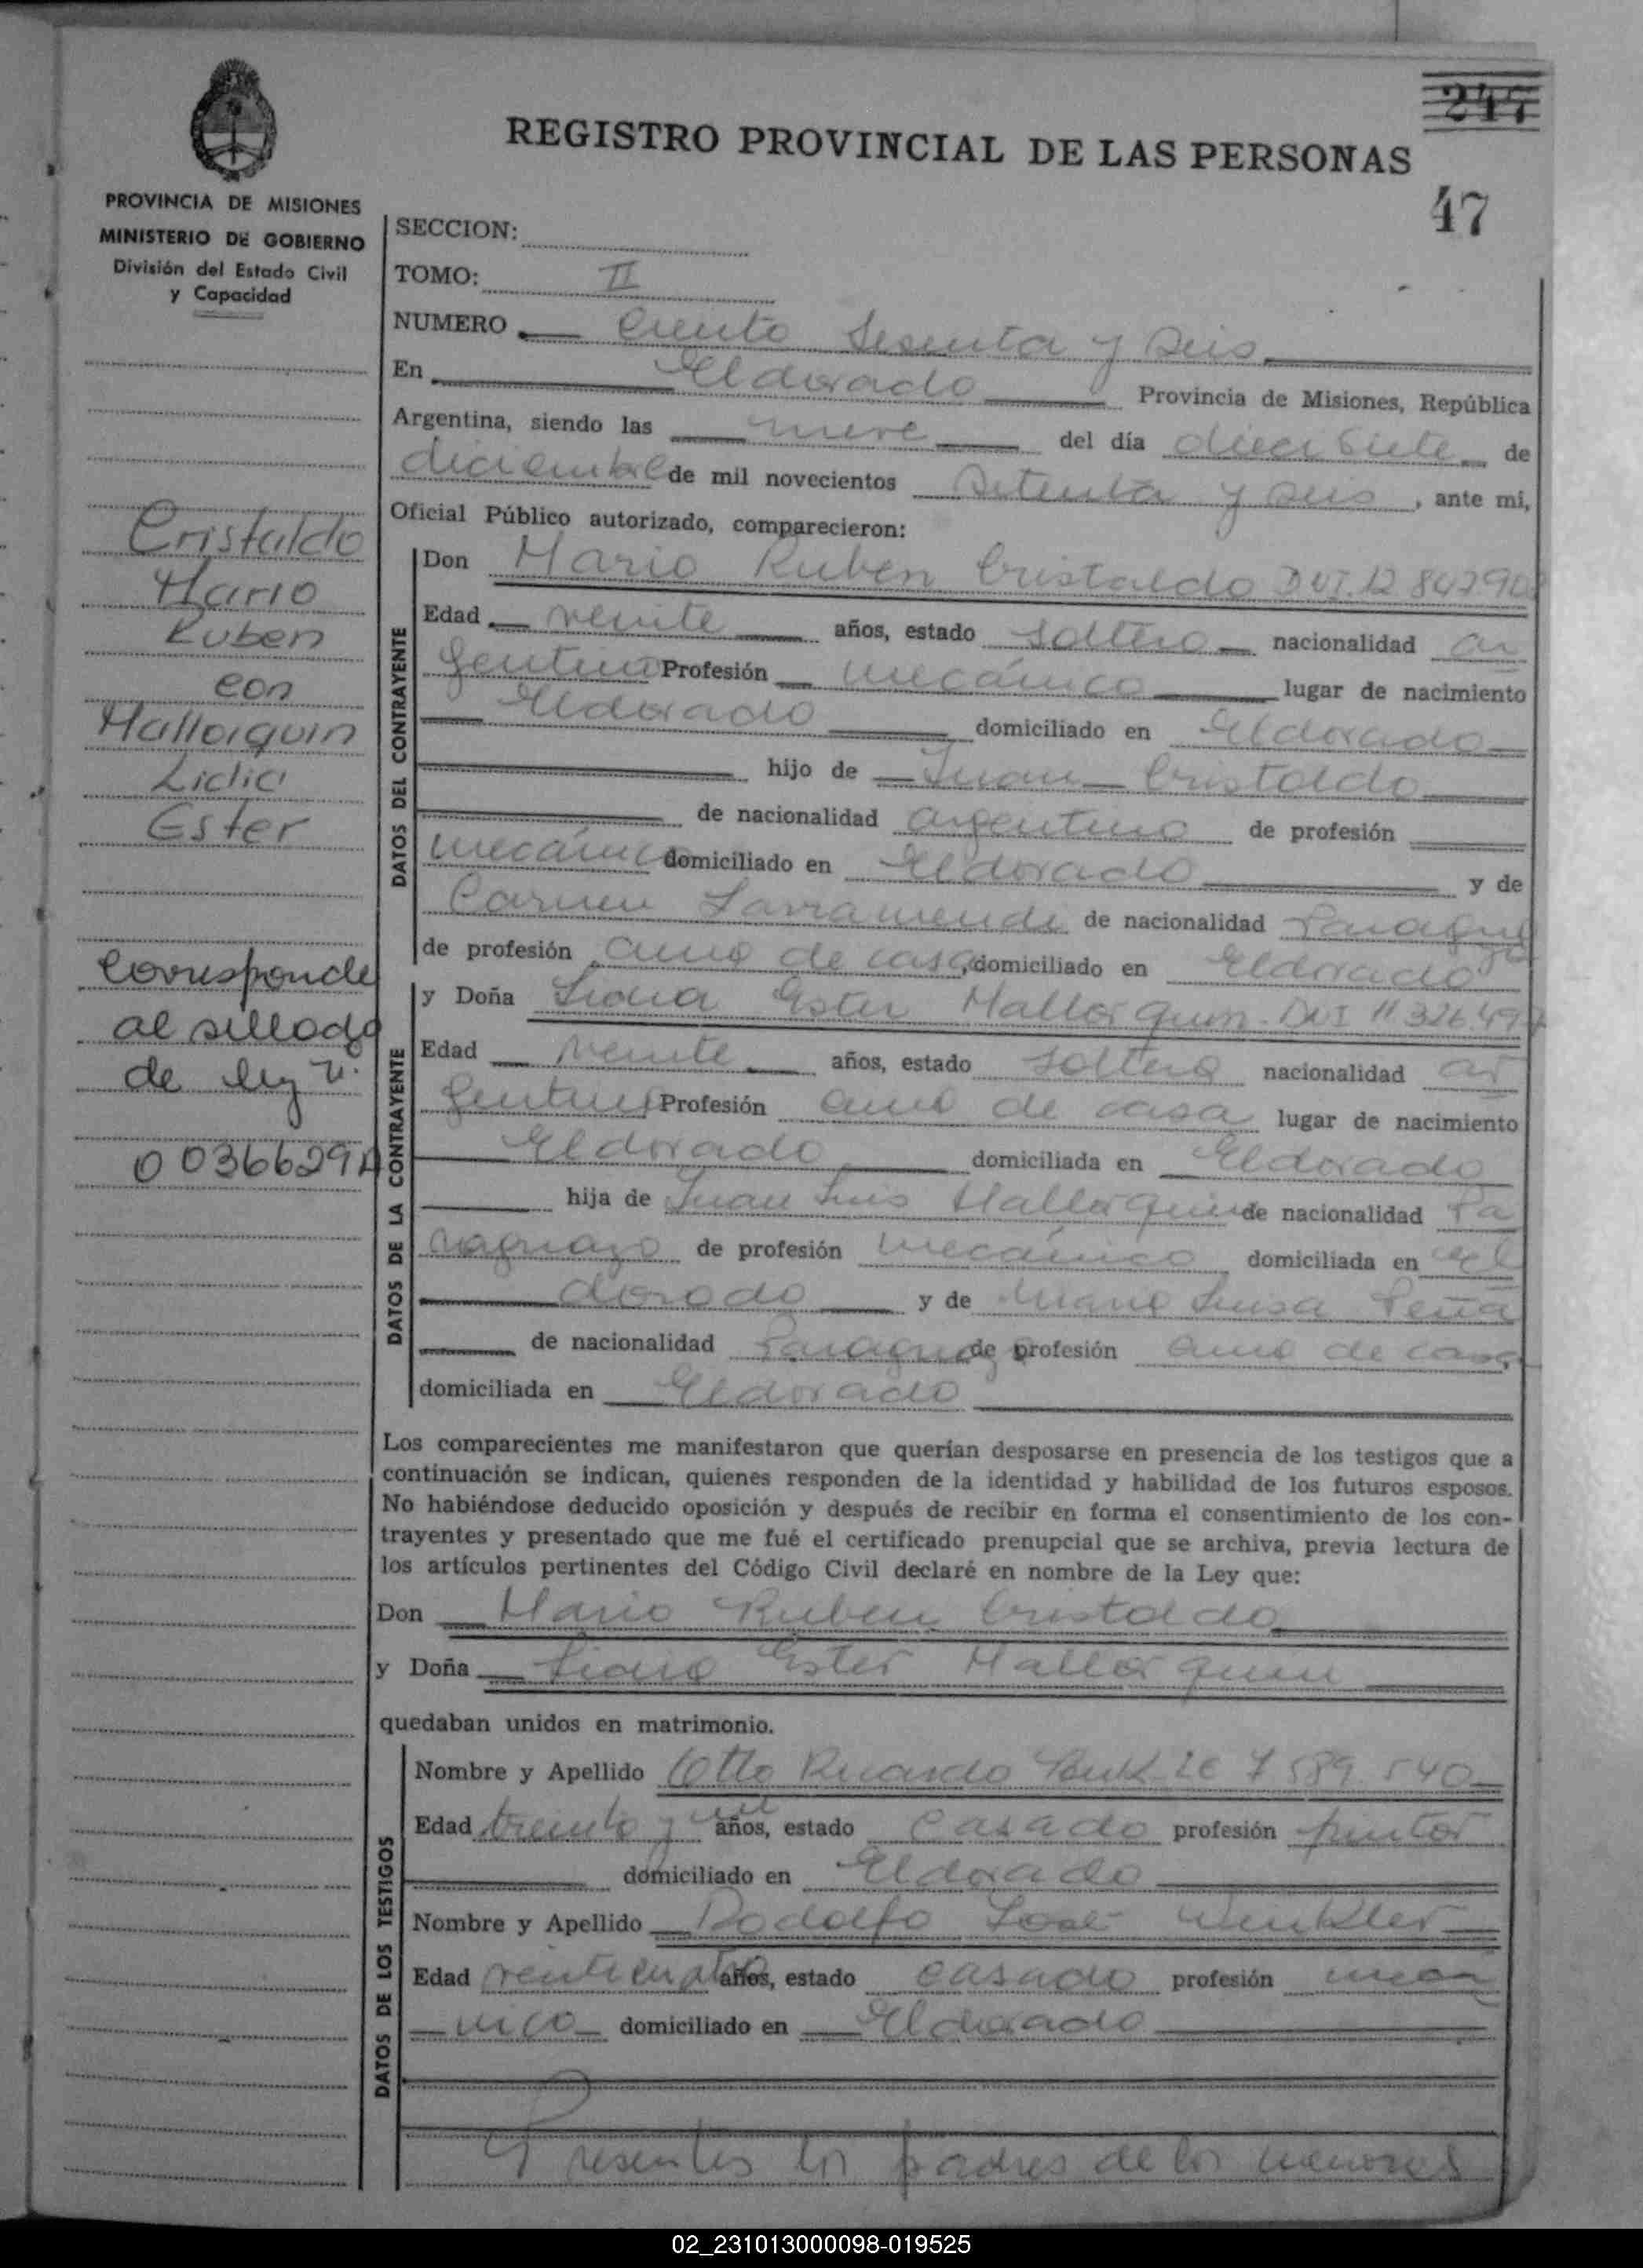 247
REGISTRO PROVINCIAL DE LAS PERSONAS
47
PROVINCIA DE MISIONES
MINISTERIO DE GOBIERNO
División del Estado Civil
y Capacidad
Cristaldo
Mario
Ruben
con
Mallorquin
Lidia
Ester
Corresponde
al sellado
de ley n.
0036629A
SECCION:
TOMO: II
NUMERO Ciento Sesenta y seis
En Eldorado Provincia de Misiones, República
Argentina, siendo las nueve del día diecisiete de
diciembre de mil novecientos setenta y seis, ante mi,
Oficial Público autorizado, comparecieron:
DATOS DEL CONTRAYENTE
Don Mario Ruben Cristaldo DNI. 12 847.90
Edad veinte años, estado soltero nacionalidad ar
gentina Profesión mecánico lugar de nacimiento
Eldorado domiciliado en Eldorado
hijo de Juan Cristaldo
de nacionalidad argentino de profesión
mecánico domiciliado en Eldorado y de
Carmen Larramendi de nacionalidad Paraguaya
de profesión ama de casa, domiciliado en Eldorado
DATOS DE LA CONTRAYENTE
y Doña Lidia Ester Mallorquin. DNI 11 326.497
Edad veinte años, estado soltera nacionalidad ar
gentina Profesión ama de casa lugar de nacimiento
Eldorado domiciliada en Eldorado
hija de Juan Luis Mallorquin de nacionalidad Pa
raguayo de profesión mecánico domiciliada en El
dorado y de Maria Luisa Peña
de nacionalidad Paraguaya de profesión ama de casa
domiciliada en Eldorado
Los comparecientes me manifestaron que querían desposarse en presencia de los testigos que a
continuación se indican, quienes responden de la identidad y habilidad de los futuros esposos.
No habiéndose deducido oposición y después de recibir en forma el consentimiento de los con-
trayentes y presentado que me fué el certificado prenupcial que se archiva, previa lectura de
los artículos pertinentes del Código Civil declaré en nombre de la Ley que:
Don Mario Ruben Cristaldo
y Doña Lidia Ester Mallorquin
quedaban unidos en matrimonio.
DATOS DE LOS TESTIGOS
Nombre y Apellido Otto Ricardo LE 7 589 540
Edad treinta y un años, estado casado profesión pintor
domiciliado en Eldorado
Nombre y Apellido Rodolfo José Winkler
Edad veinticuatro años, estado casado profesión mecá
nico domiciliado en Eldorado
Presentes los padres de los menores
02_231013000098-019525